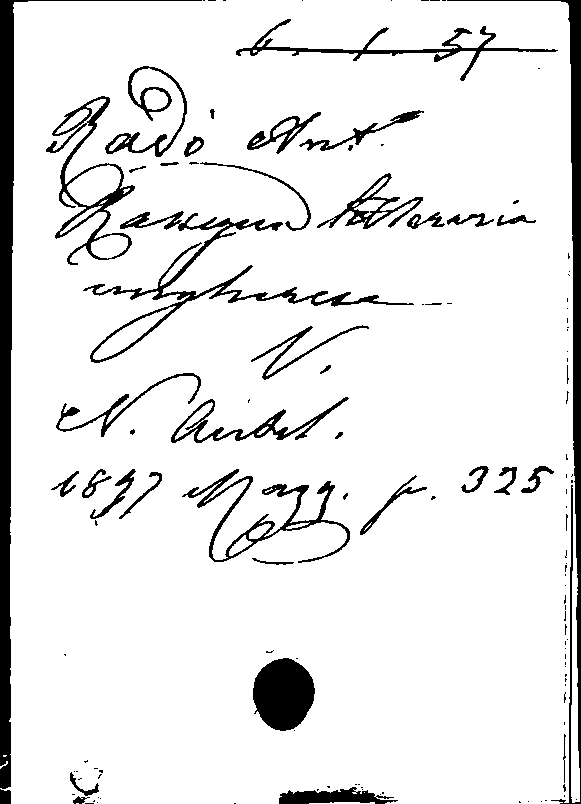 6. 1. 57
Radó Ant.
Rassegna letteraria
ungherese
V.
N. Antol.
1897 Magg. p. 325